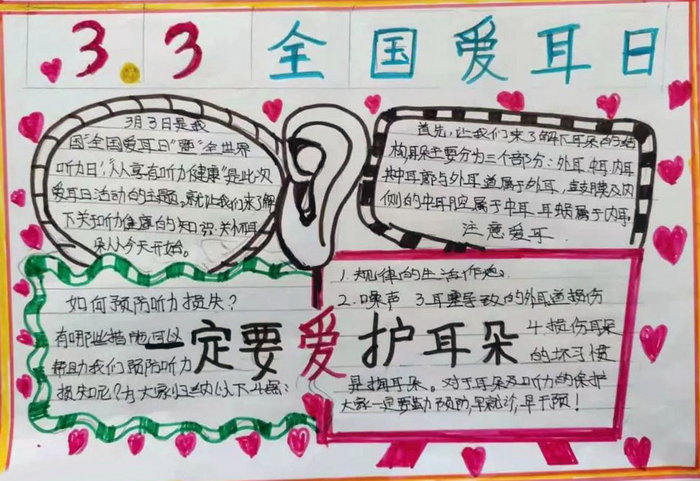 3.3 全国爱耳日
3月3日是我
国"全国爱耳日"暨"全世界
听力日","人人享有听力健康"是此次
爱耳日活动的主题,就让我们来了解
下关于听力健康的知识,关怀耳
朵从今天开始。
首先,让我们来了解下耳朵的结
构,耳朵主要分为三个部分:外耳、中耳、内耳
其中耳廓与外耳道属于外耳,鼓膜及内
侧的中耳腔属于中耳,耳蜗属于内耳
注意爱耳
如何预防听力损失?
有哪些措施可以
帮助我们预防听力
损失呢?为大家归纳以下4点:
一定要爱护耳朵
1.规律的生活作息。
2.噪声 3.耳塞导致的外耳道损伤
4.损伤耳朵
的坏习惯
是掏耳朵。对于耳朵及听力的保护
大家一定要勤预防,早就诊,早干预!